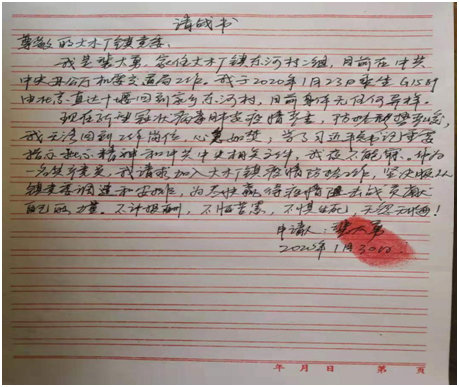 请战书
尊敬的大木厂镇党委:
我是龚大勇,家住大木厂镇东河村二组,目前在中共
中央办公厅机要交通局工作。我于2020年1月23日乘坐G1589
由北京直达十堰回到家乡东河村,目前身体无任何异样。
现在新型冠状病毒肺炎疫情严重,防控形势严峻,
我无法回到工作岗位,心急如焚,学习近平总书记重要
指示批示精神和中共中央相关文件,我夜不能寐,作为
一名共产党员,我请求加入大木厂镇疫情防控工作,坚决服从
镇党委调遣和安排,为尽快赢得疫情阻击战贡献
自己的力量。不计报酬,不怕苦累,不惧生死,无怨无悔!
申请人:龚大勇
2020年1月30日
年 月 日 第 页